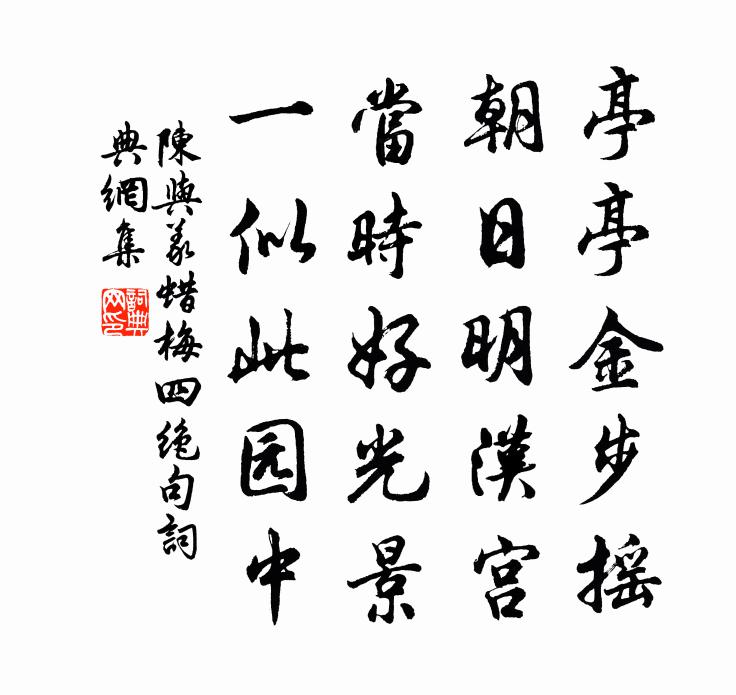 亭亭金步摇
朝日明漢宮
當時好光景
一似此园中
陳與義蜡梅四絶句詞
典網集
詞典
网印